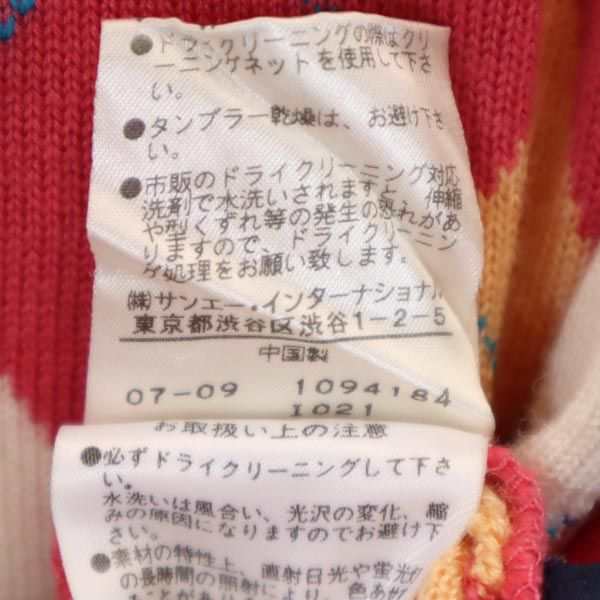 ●ドライクリーニングの際はクリ
ーニングネットを使用して下さ
い。
●タンブラー乾燥は、お避け下さ
い。
●市販のドライクリーニング対応
洗剤で水洗いされますと、伸縮
や型くずれ等の発生の恐れがあ
りますので、ドライクリーニン
グ処理をお願い致します。
㈱サンエー・インターナショナル
東京都渋谷区渋谷1-2-5
中国製
07-09 1094184
I021
お取扱い上の注意
●必ずドライクリーニングして下さ
い。
水洗いは風合い、光沢の変化、縮
みの原因になりますのでお避け下
さい。
●素材の特性上、直射日光や蛍光
の長時間の照射により、色あ
ることが